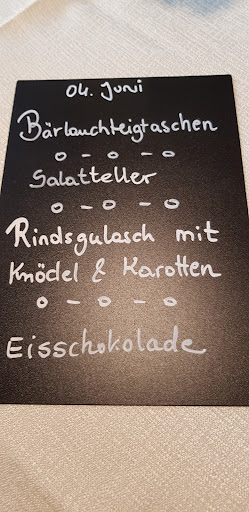 04. Juni
Bärlauchteigtaschen
o - o - o
Salatteller
o - o - o
Rindsgulasch mit
Knödel & Karotten
o - o - o
Eisschokolade